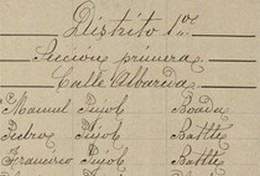 Distrito 1º
Sección primera
Calle Albareda
Manuel Pujol Boada
Pedro Pujol Batlle
Francisco Pujol Batlle